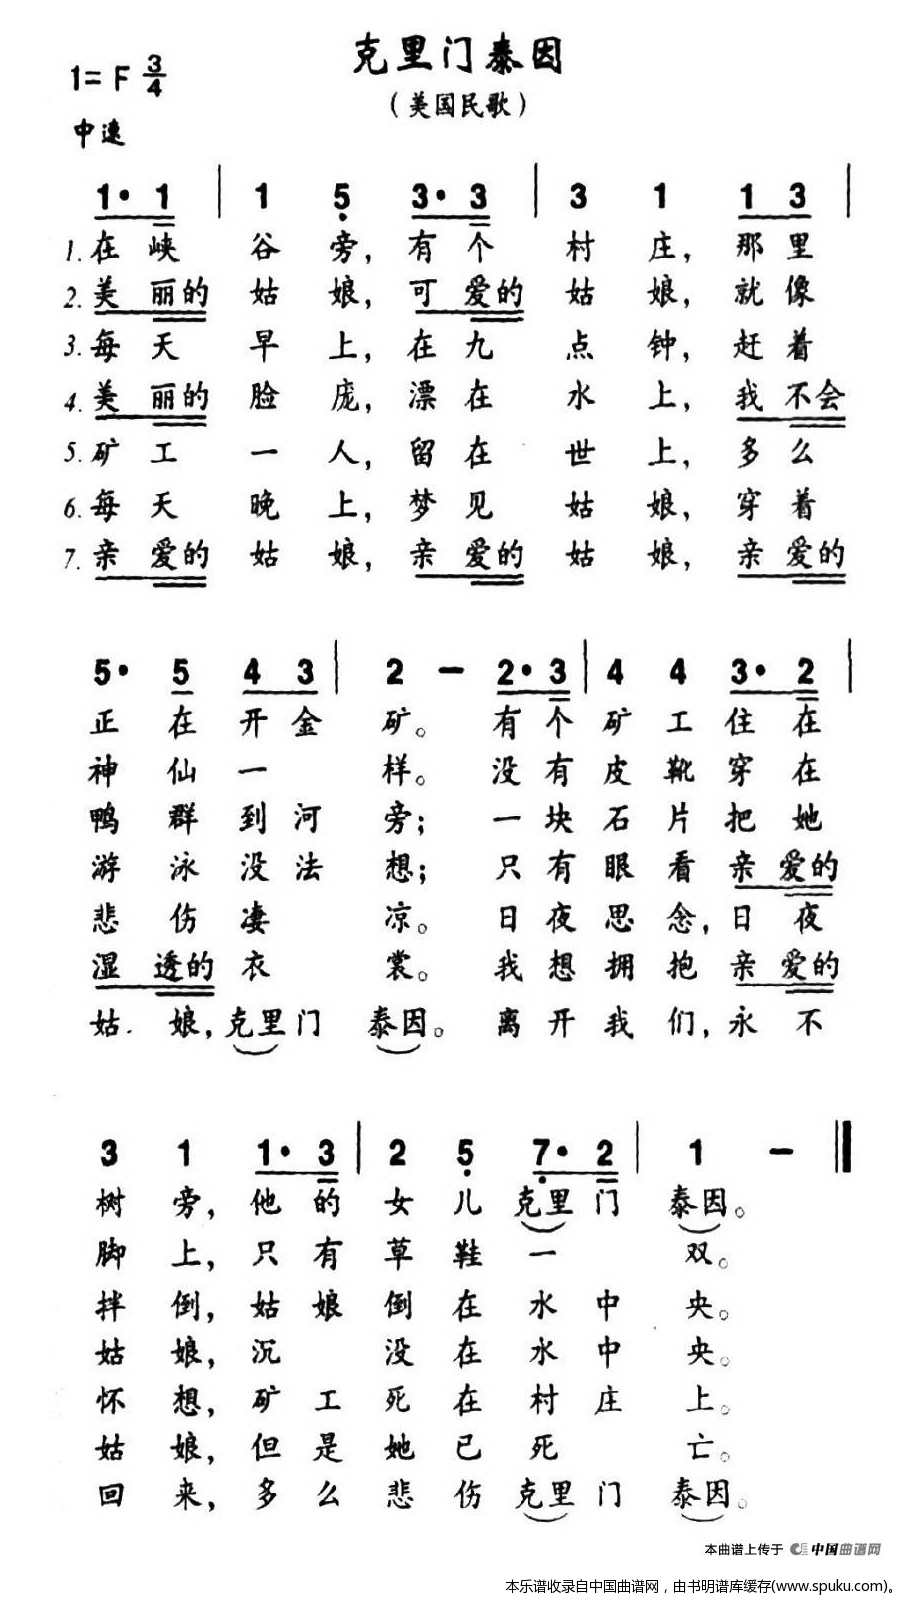 克里门泰因
1=F 3/4
（美国民歌）
中速
1· 1 | 1 5 3· 3 | 3 1 1 3 |
1. 在峡谷旁，有个村庄，那里
2. 美丽的姑娘，可爱的姑娘，就像
3. 每天早上，在九点钟，赶着
4. 美丽的脸庞，漂在水上，我不会
5. 矿工一人，留在世上，多么
6. 每天晚上，梦见姑娘，穿着
7. 亲爱的姑娘，亲爱的姑娘，亲爱的
5· 5 4 3 | 2 － 2· 3 | 4 4 3· 2 |
正在开金矿。有个矿工住在
神仙一样。没有皮靴穿在
鸭群到河旁；一块石片把她
游泳没法想；只有眼看亲爱的
悲伤凄凉。日夜思念，日夜
湿透的衣裳。我想拥抱亲爱的
姑.娘，克里门泰因。离开我们，永不
3 1 1· 3 | 2 5 7· 2 | 1 － ‖
树旁，他的女儿克里门泰因。
脚上，只有草鞋一双。
拌倒，姑娘倒在水中央。
姑娘，沉没在水中央。
怀想，矿工死在村庄上。
姑娘，但是她已死亡。
回来，多么悲伤克里门泰因。
本曲谱上传于 中国曲谱网
本乐谱收录自中国曲谱网，由书明谱库缓存(www.spuku.com)。